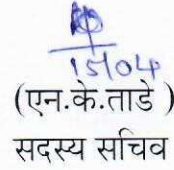 15/04
(एन.के.ताडे )
सदस्य सचिव